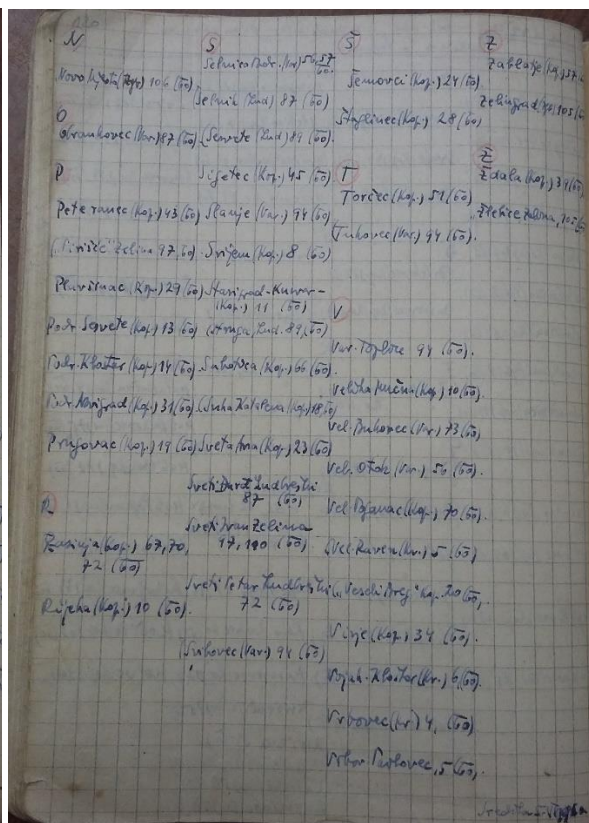 N
Novo
106 (60)
O
(Var.) 87 (60)
P
Peteranec (Kop.) 43 (60)
Zelina 97, 60)
(Kop.) 29 (60)
Podr. Sesvete (Kop.) 13 (60)
Podr. Kloštar (Kop.) 14 (60)
Podr. Novigrad (Kop.) 31 (60)
(Kop.) 19 (60)
R
Rasinja (Kop.) 67, 70,
72 (60)
Rijeka (Kop.) 10 (60).
S
Selnica Podr. (Var.) 56, 57
60.
Selnik (Lud.) 87 (60)
Sesvete (Lud.) 89 (60).
Sigetec (Kop.) 45 (60)
Slanje (Var.) 94 (60)
(Kop.) 8 (60)
Starigrad-
(Kop.) 11 (60)
Struga, Lud. 89, (60)
Subotica (Kop.) 66 (60).
Suha Katalena (Kop.) 18 (60)
Sveta Ana (Kop.) 23 (60)
Sveti Đurđ Ludbreški
87 (60)
Sveti Ivan Zelina
97, 100 (60)
Sveti Petar Ludbreški
72 (60)
(Var.) 94 (60)
Š
Šemovci (Kop.) 24 (60).
Štaglinec (Kop.) 28 (60)
T
Torčec (Kop.) 51 (60)
Tuhovec (Var.) 94 (60).
V
Var. Toplice 94 (60).
Velika Mučna (Kop.) 10 (60).
Vel. Bukovec (Var.) 73 (60)
Vel. Otok (Var.) 56 (60).
Vel. Poganac (Kop.) 70 (60).
Vel. Raven (Kr.) 5 (60)
"Veseli Breg" Kop. 20 (60).
Virje (Kop.) 34 (60).
Vojak. Kloštar (Kr.) 6 (60).
Vrbovec (Kr.) 4, (60)
Pavlovec, 5 (60).
Z
Zablatje (Kop.) 57
Zelingrad
105
Ž
Ždala (Kop.) 39 (60)
Zelina,